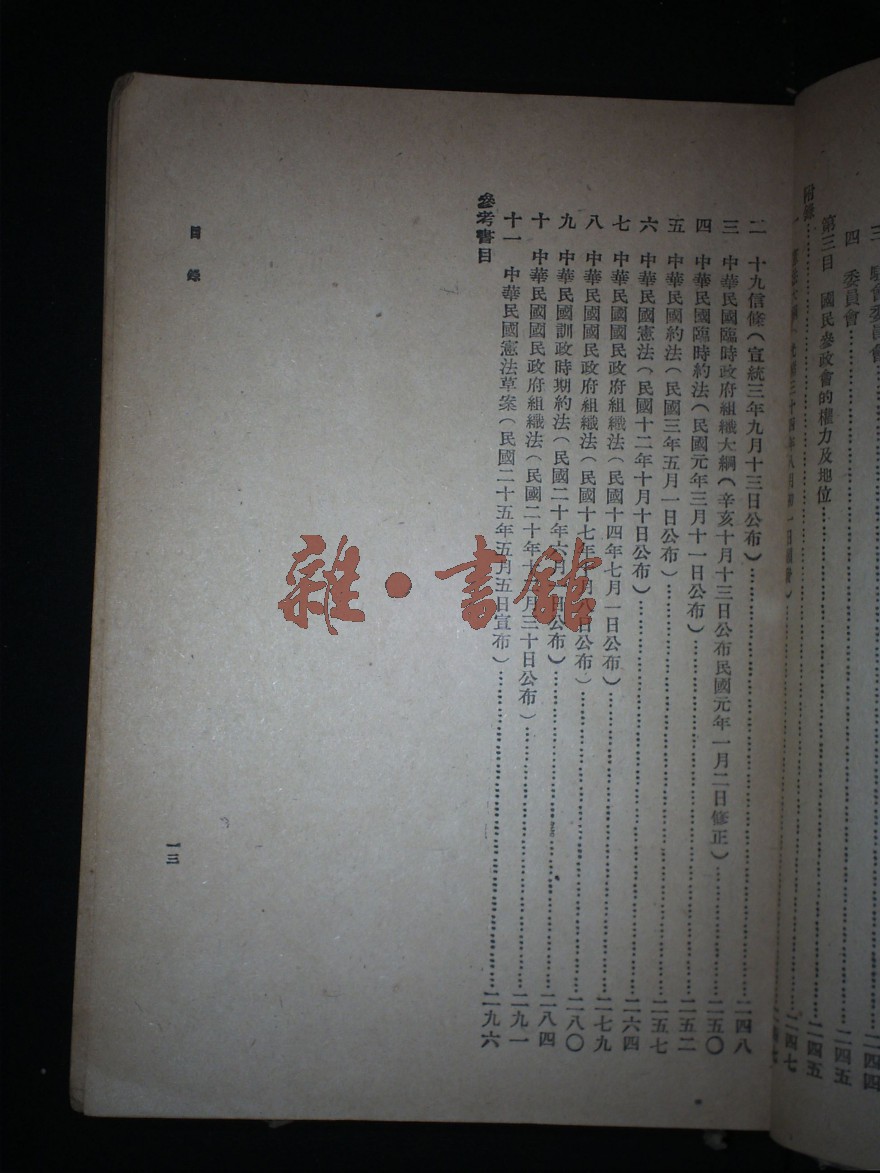 三
四 委員會……二四五
第三目 國民參政會的權力及地位……二四五
附錄……二四七
二 十九信條(宣統三年九月十三日公布)……二四八
三 中華民國臨時政府組織大綱(辛亥十月十三日公布民國元年一月二日修正)……二五〇
四 中華民國臨時約法(民國元年三月十一日公布)……二五二
五 中華民國約法(民國三年五月一日公布)……二五七
六 中華民國憲法(民國十二年十月十日公布)……二六四
七 中華民國國民政府組織法(民國十四年七月一日公布)……二七九
八 中華民國國民政府組織法(民國十七年 月 日公布)……二八〇
九 中華民國訓政時期約法(民國二十年六月 日公布)……二八四
十 中華民國國民政府組織法(民國二十年十 月三十日公布)……二九一
十一 中華民國憲法草案(民國二十五年五月五日宣布)……二九六
參考書目
目錄
一三
雜·書館